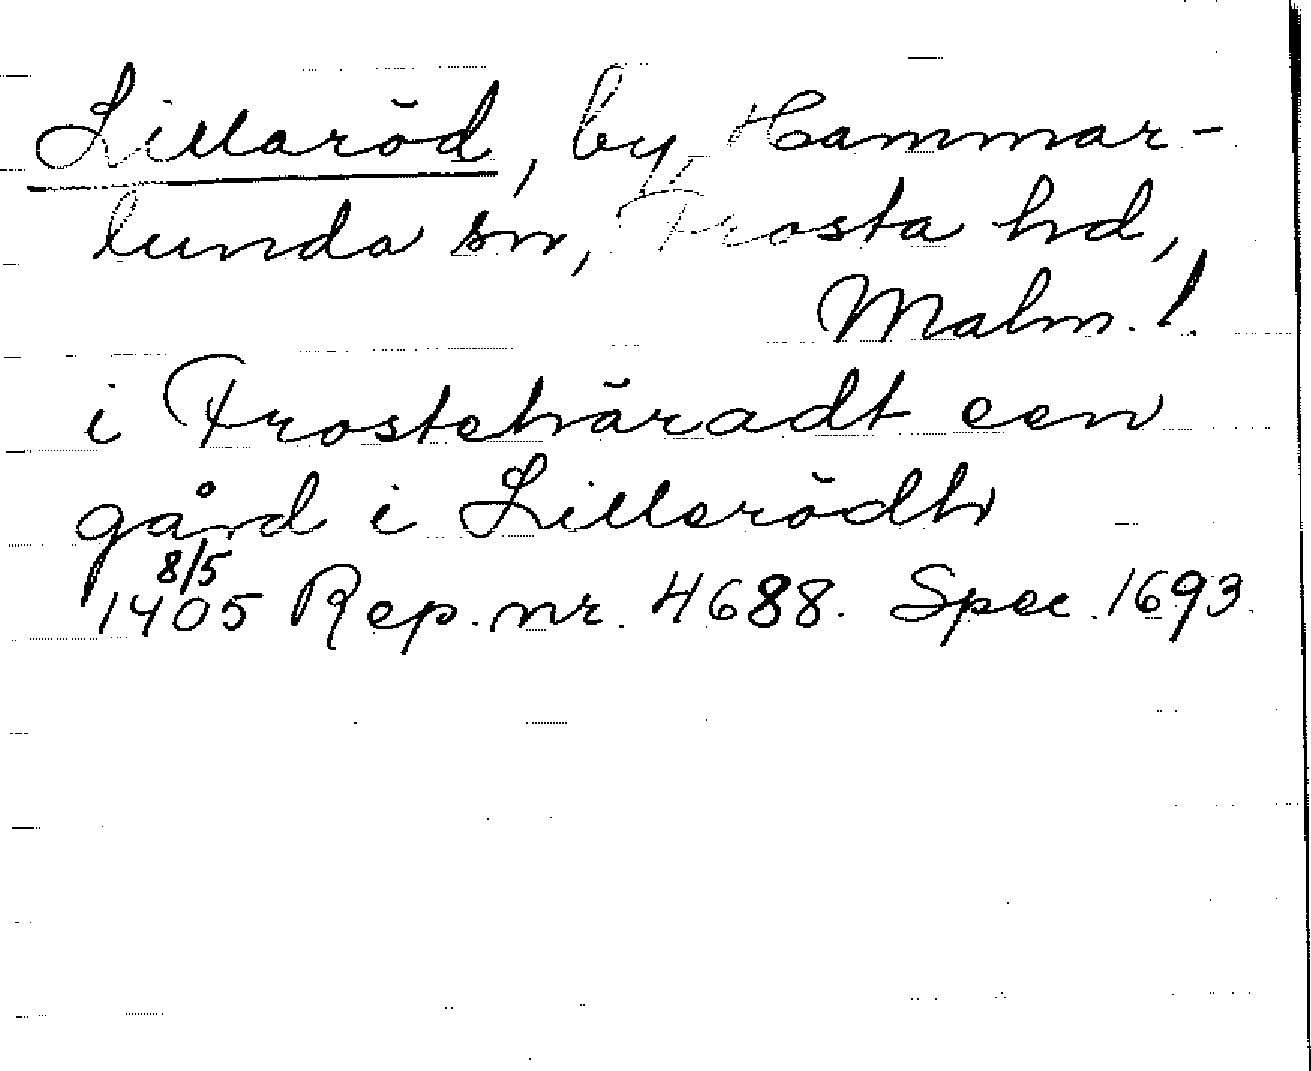 Lillaröd, by, Hammar-
lunda sn, Frosta hd,
Malm. l.
i Frostehäradt een
gård i Lillerödh
8/5
1405 Rep. nr. 4688. Spec 1693